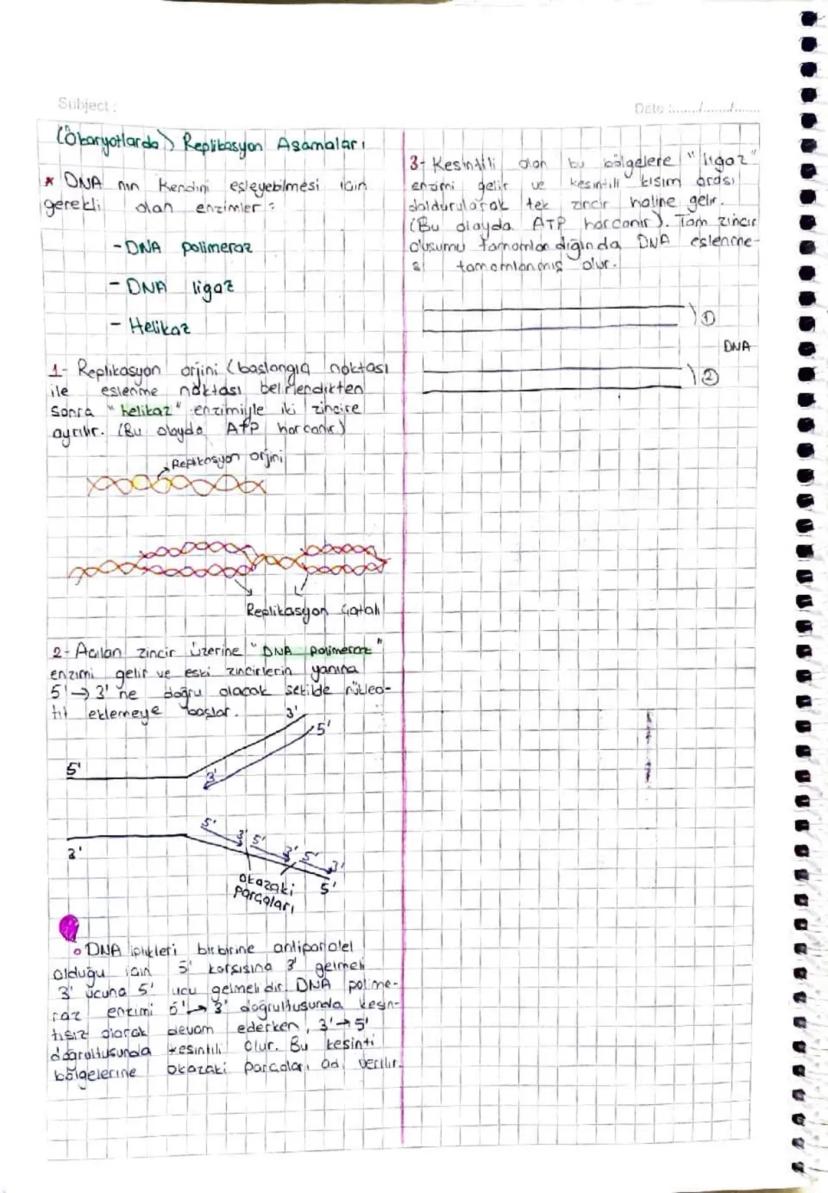 Subject :
Date :......./......./.......
(Ökaryotlarda) Replikasyon Aşamaları
* DNA nın kendini eşleyebilmesi için
gerekli olan enzimler :
- DNA polimeraz
- DNA ligaz
- Helikaz
1- Replikasyon orjini (başlangıç noktası
ile eşlenme noktası belirlendikten
sonra "helikaz" enzimiyle iki zincire
ayrılır. (Bu olayda ATP harcanır)
Replikasyon orjini
Replikasyon Çatalı
2- Açılan zincir üzerine "DNA polimeraz"
enzimi gelir ve eski zincirlerin yanına
5' → 3' ne doğru olacak şekilde nükleo-
tit eklemeye başlar.
3'
5'
5'
3'
5'
3' 5'
3' 5'
3'
3'
5'
Okazaki
parçaları
• DNA iplikleri birbirine antiparalel
olduğu için 5' karşısına 3' gelmeli
3' ucuna 5' ucu gelmelidir. DNA polime-
raz enzimi 5' → 3' doğrultusunda kesin-
tisiz olarak devam ederken, 3' → 5'
doğrultusunda kesintili olur. Bu kesinti
bölgelerine okazaki parçaları adı verilir.
3- Kesintili olan bu bölgelere "ligaz"
enzimi gelir ve kesintili kısım arası
doldurularak tek zincir haline gelir.
(Bu olayda ATP harcanır). Tam zincir
oluşumu tamamlandığında DNA eşlenme-
si tamamlanmış olur.
①
DNA
②